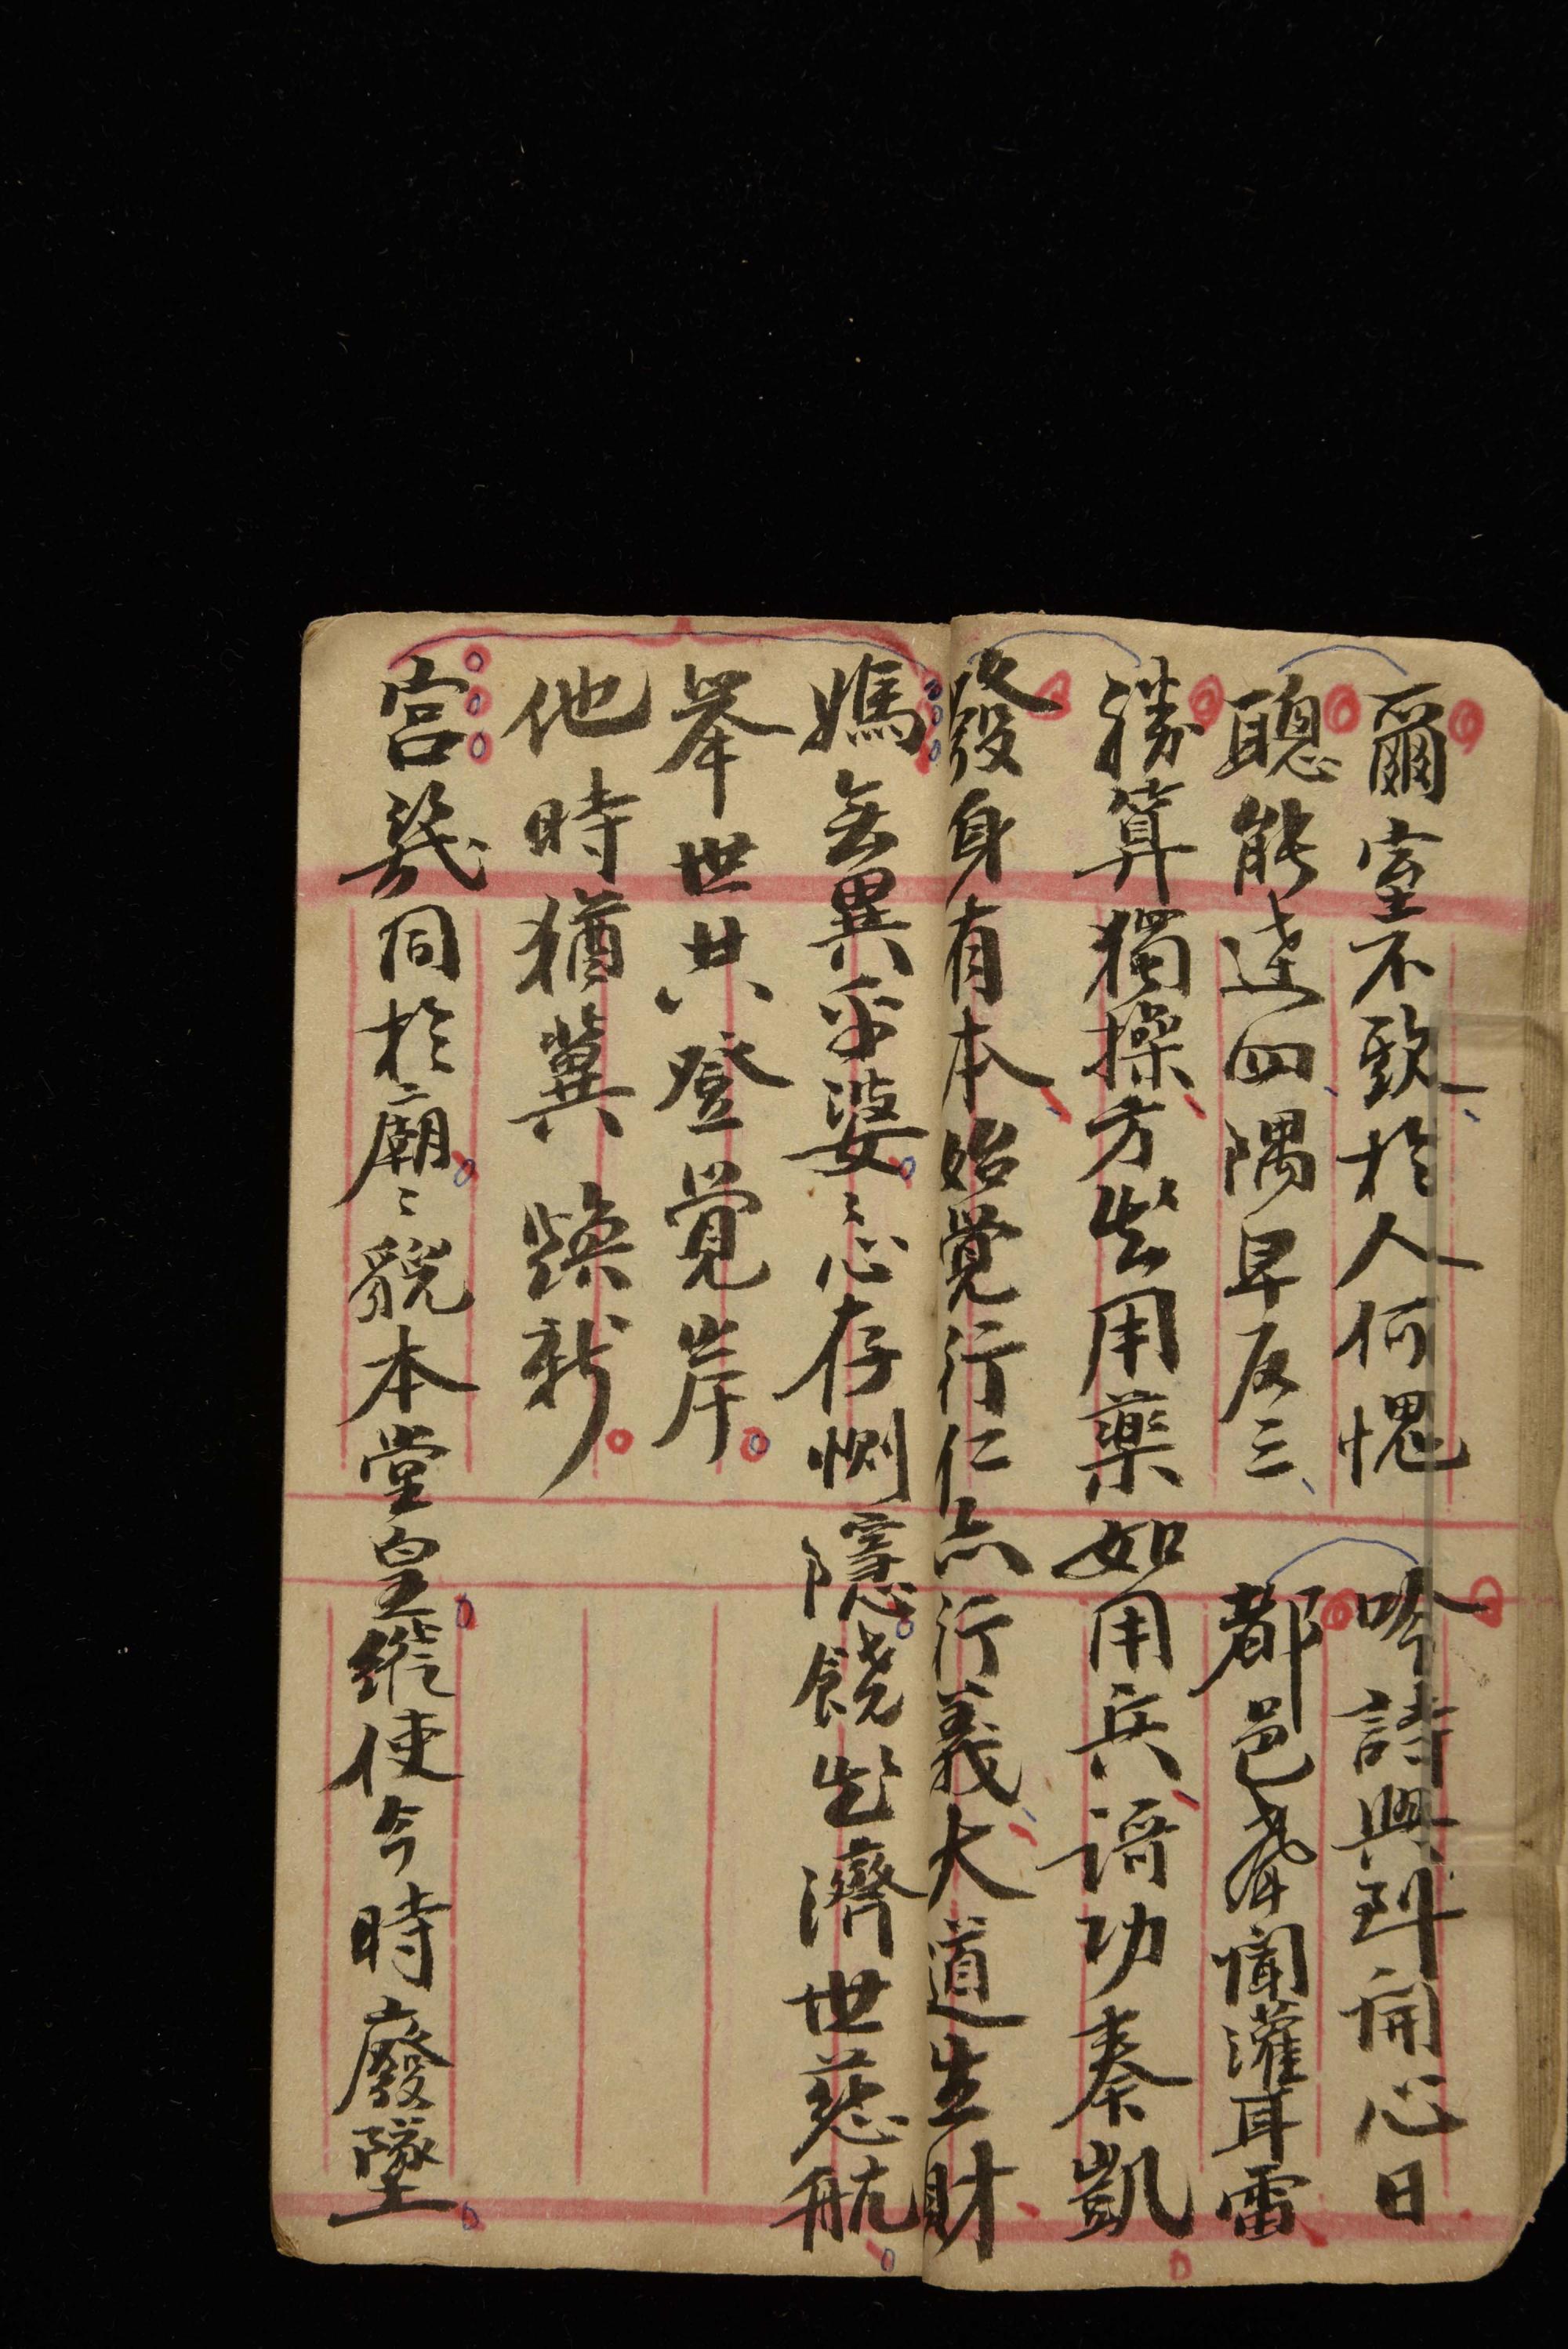 爾室不欺於人何愧
吟詩興到開心日
聰能達四隅早反三
都邑聲聞灌耳雷
勝算獨操方能用藥如用兵語功奏凱
發身有本始覺行仁亦行義大道生財
媽無異乎婆〻心存惻隱饒能濟世慈航
舉世共登覺岸
他時猶冀煥新
宮幾同於廟〻貌本堂皇縱使今時廢墜